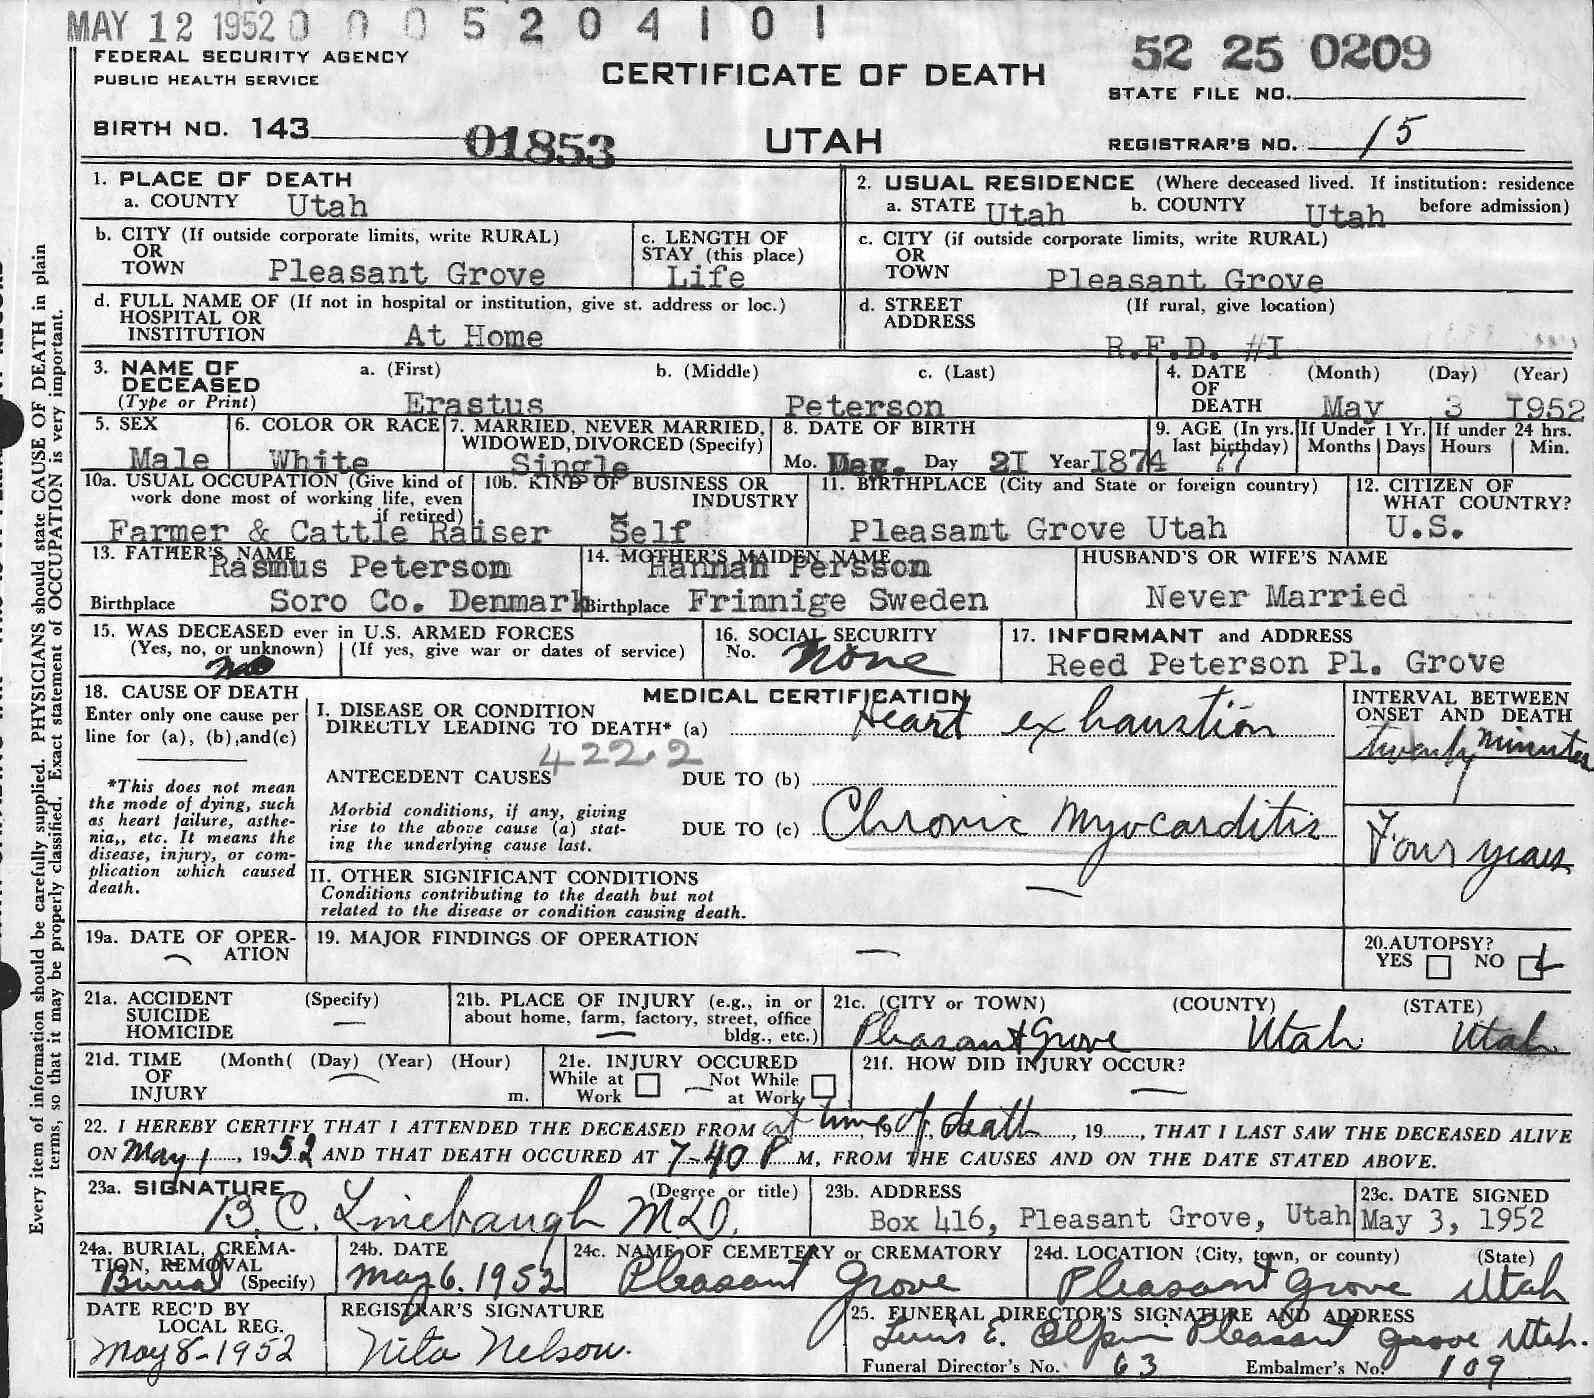 MAY 12 1952 0 0 0 5 2 0 4 1 0 1
FEDERAL SECURITY AGENCY
PUBLIC HEALTH SERVICE
CERTIFICATE OF DEATH
52 25 0209
STATE FILE NO.
BIRTH NO. 143
01853
UTAH
REGISTRAR'S NO. 15
1. PLACE OF DEATH
a. COUNTY Utah
2. USUAL RESIDENCE (Where deceased lived. If institution: residence before admission)
a. STATE Utah b. COUNTY Utah
b. CITY (If outside corporate limits, write RURAL)
OR
TOWN Pleasant Grove
c. LENGTH OF
STAY (this place)
Life
c. CITY (if outside corporate limits, write RURAL)
OR
TOWN Pleasant Grove
d. FULL NAME OF (If not in hospital or institution, give st. address or loc.)
HOSPITAL OR
INSTITUTION At Home
d. STREET (If rural, give location)
ADDRESS
R.F.D. #I
3. NAME OF
DECEASED
(Type or Print)
a. (First) b. (Middle) c. (Last)
Erastus Peterson
4. DATE (Month) (Day) (Year)
OF
DEATH May 3 1952
5. SEX
Male
6. COLOR OR RACE
White
7. MARRIED, NEVER MARRIED,
WIDOWED, DIVORCED (Specify)
Single
8. DATE OF BIRTH
Mo. Dec. Day 2I Year I874
9. AGE (In yrs. last birthday)
77
If Under 1 Yr.
Months Days
If under 24 hrs.
Hours Min.
10a. USUAL OCCUPATION (Give kind of
work done most of working life, even
if retired)
Farmer & Cattle Raiser
10b. KIND OF BUSINESS OR
INDUSTRY
Self
11. BIRTHPLACE (City and State or foreign country)
Pleasant Grove Utah
12. CITIZEN OF
WHAT COUNTRY?
U.S.
13. FATHER'S NAME
Rasmus Peterson
Birthplace Soro Co. Denmark
14. MOTHER'S MAIDEN NAME
Hannah Persson
Birthplace Frinnige Sweden
HUSBAND'S OR WIFE'S NAME
Never Married
15. WAS DECEASED ever in U.S. ARMED FORCES
(Yes, no, or unknown) (If yes, give war or dates of service)
No
16. SOCIAL SECURITY
No. None
17. INFORMANT and ADDRESS
Reed Peterson Pl. Grove
18. CAUSE OF DEATH
Enter only one cause per
line for (a), (b),and(c)
*This does not mean
the mode of dying, such
as heart failure, asthe-
nia,, etc. It means the
disease, injury, or com-
plication which caused
death.
MEDICAL CERTIFICATION
I. DISEASE OR CONDITION
DIRECTLY LEADING TO DEATH* (a) Heart exhaustion
422.2
ANTECEDENT CAUSES
DUE TO (b)
Morbid conditions, if any, giving
rise to the above cause (a) stat-
ing the underlying cause last.
DUE TO (c) Chronic Myocarditis
INTERVAL BETWEEN
ONSET AND DEATH
twenty minutes
Four years
II. OTHER SIGNIFICANT CONDITIONS
Conditions contributing to the death but not
related to the disease or condition causing death.
—
19a. DATE OF OPER-
ATION
—
19. MAJOR FINDINGS OF OPERATION
—
20.AUTOPSY?
YES NO
21a. ACCIDENT (Specify)
SUICIDE
HOMICIDE
—
21b. PLACE OF INJURY (e.g., in or
about home, farm, factory, street, office
bldg., etc.)
—
21c. (CITY or TOWN) (COUNTY) (STATE)
Pleasant Grove Utah Utah
21d. TIME (Month( (Day) (Year) (Hour)
OF
INJURY m.
21e. INJURY OCCURED
While at Work Not While at Work
21f. HOW DID INJURY OCCUR?
—
22. I HEREBY CERTIFY THAT I ATTENDED THE DECEASED FROM at time of death, 19, 19, THAT I LAST SAW THE DECEASED ALIVE
ON May 1, 1952 AND THAT DEATH OCCURED AT 7-40 P M, FROM THE CAUSES AND ON THE DATE STATED ABOVE.
23a. SIGNATURE (Degree or title)
B.C. Linebaugh M.D.
23b. ADDRESS
Box 416, Pleasant Grove, Utah
23c. DATE SIGNED
May 3, 1952
24a. BURIAL, CREMA-
TION, REMOVAL
Burial (Specify)
24b. DATE
May 6. 1952
24c. NAME OF CEMETERY or CREMATORY
Pleasant Grove
24d. LOCATION (City, town, or county) (State)
Pleasant Grove Utah
DATE REC'D BY
LOCAL REG.
May 8-1952
REGISTRAR'S SIGNATURE
Nita Nelson.
25. FUNERAL DIRECTOR'S SIGNATURE AND ADDRESS
E. Pleasant Grove Utah.
Funeral Director's No. 63 Embalmer's No. 109
Every item of information should be carefully supplied. PHYSICIANS should state CAUSE OF DEATH in plain
terms, so that it may be properly classified. Exact statement of OCCUPATION is very important.